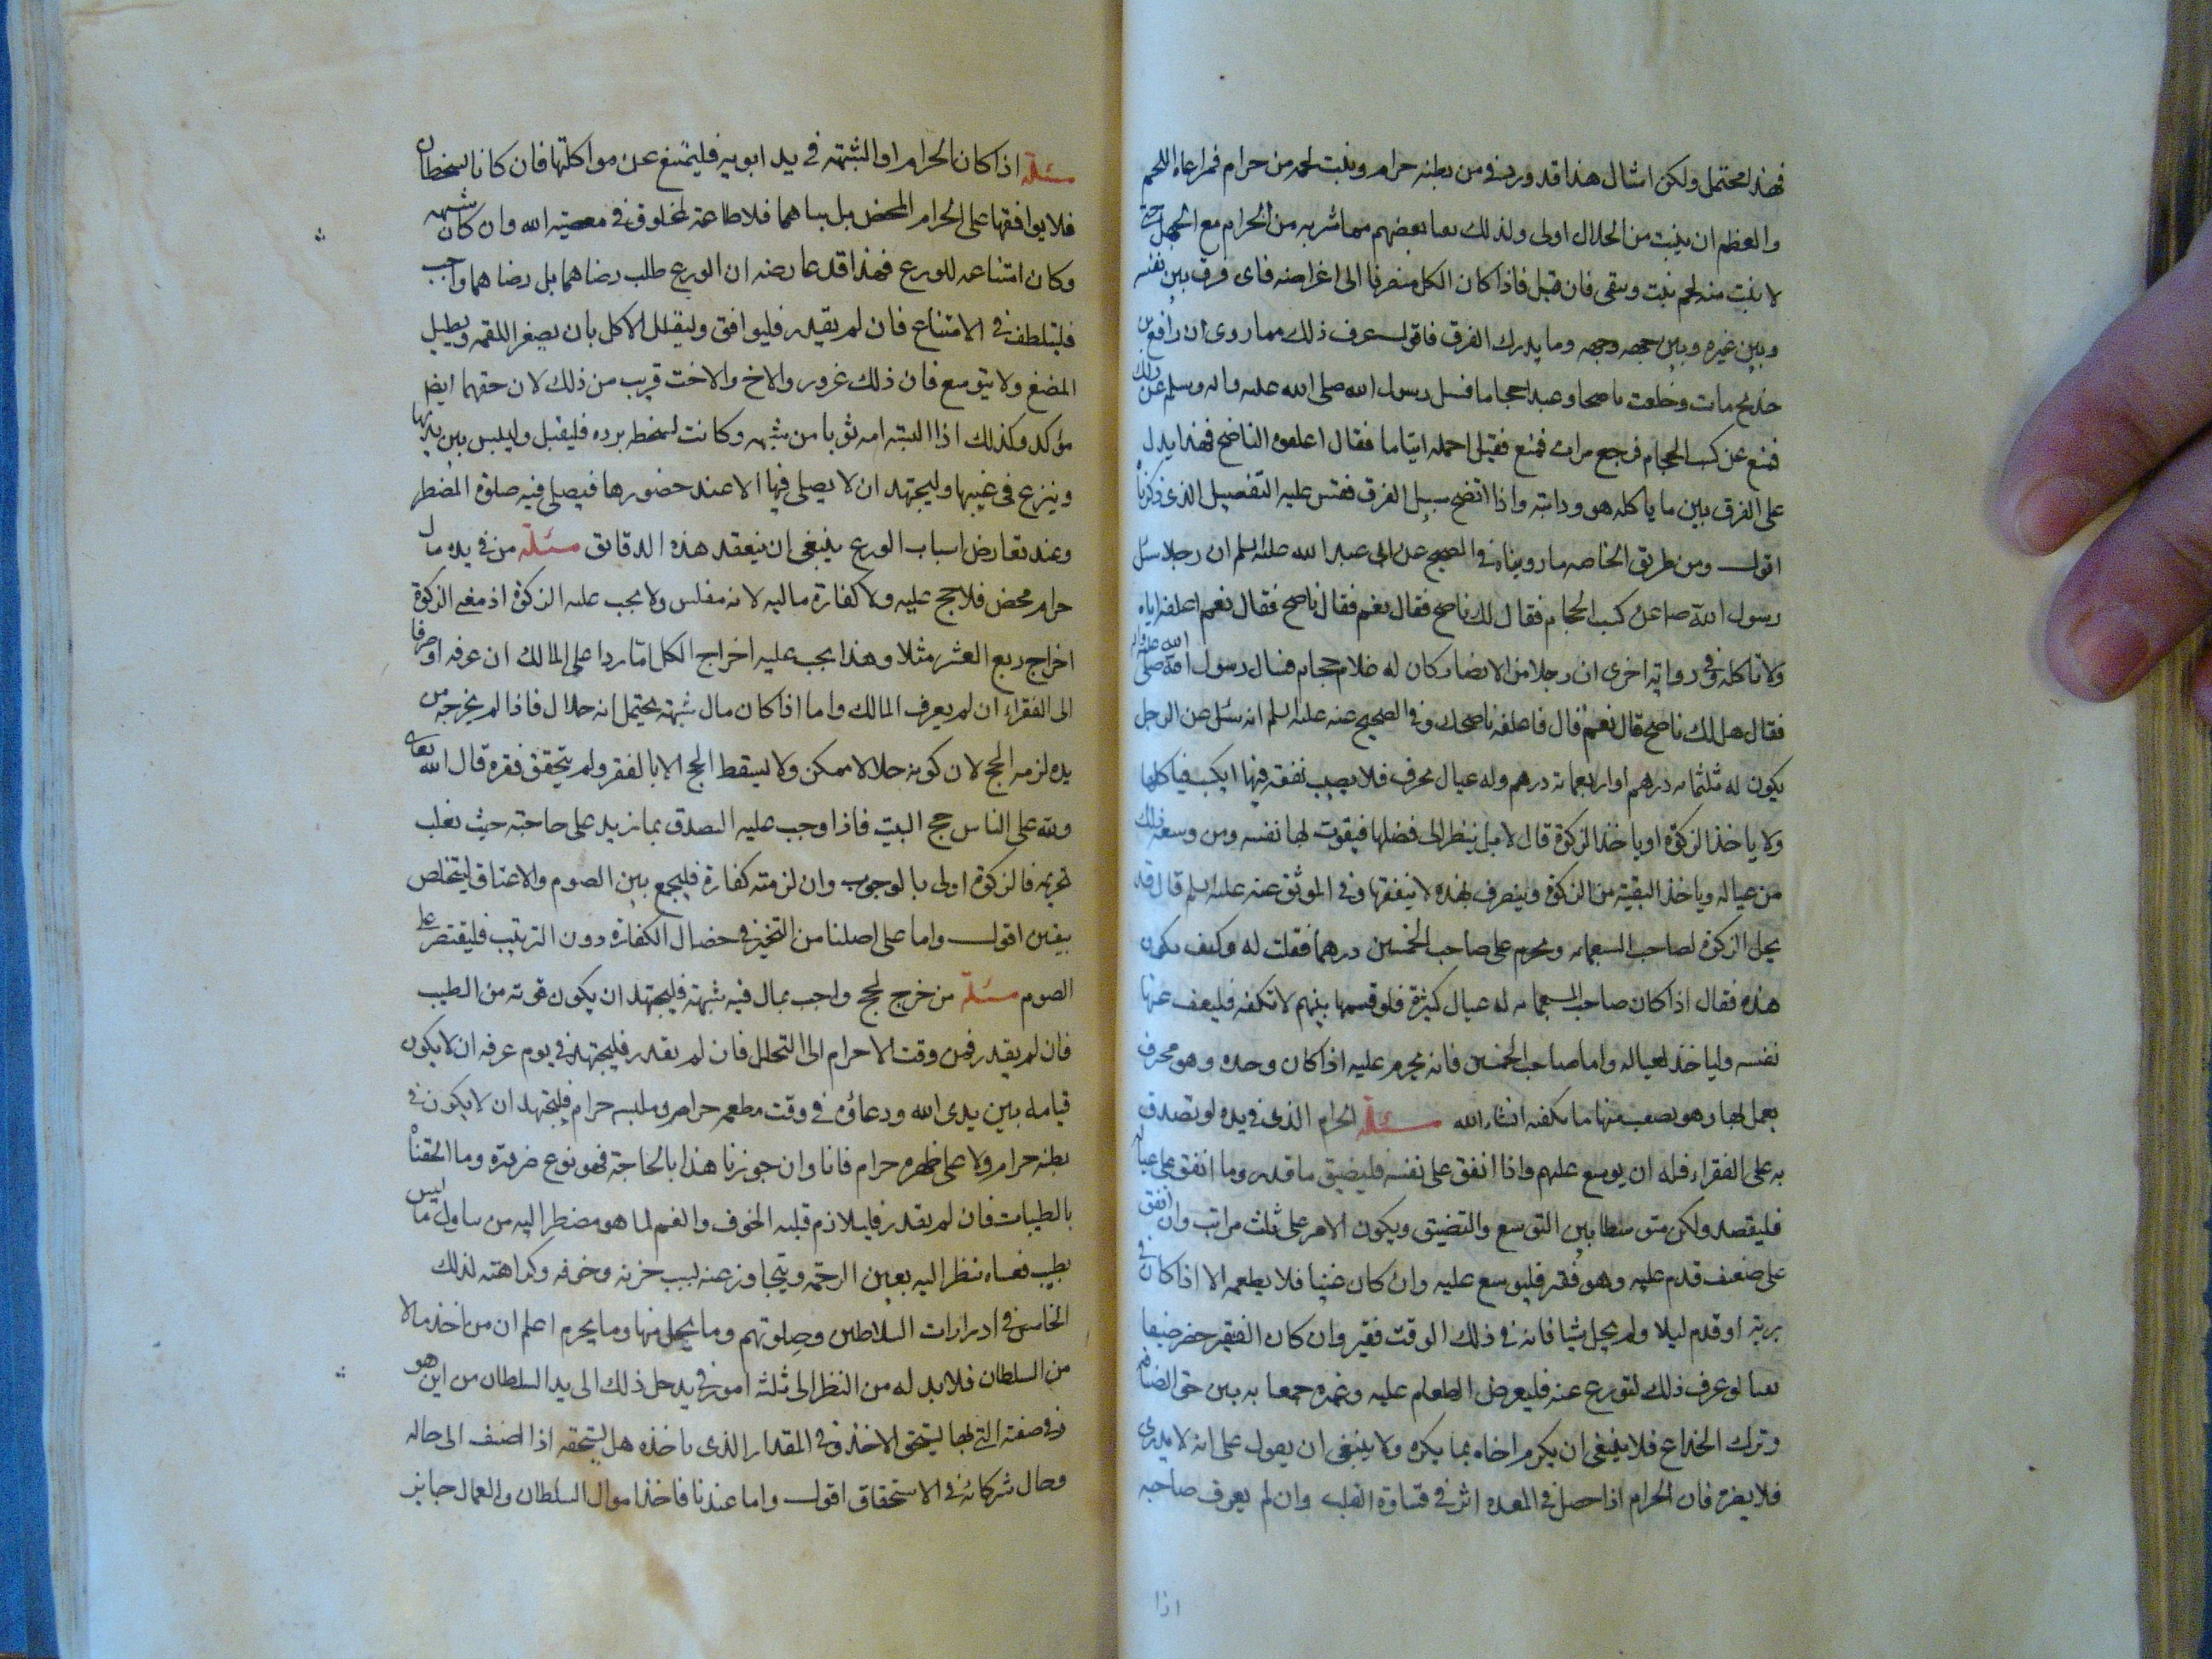 فهذا محتمل ولكن امثال هذا قد ورد في من بطنه حرام ونبت لحمه من حرام فمراعاه اللحم
والعظم ان ينبت من الحلال اولى ولذلك تقيا بعضهم مما شربه من الحرام مع الجهل حتى
لا ينبت منه لحم يثبت ويبقى فان قيل فاذا كان الكل منصرفا الى اغراضه فاى فرق بين نفسه
وبين غيره وبين جهه وجهه وما يدرك الفرق فاقول عرف ذلك مما روى ان رافع بن
خديج مات وخلف ناضحا وعبدا حجاما فسئل رسول الله صلى الله عليه واله وسلم عن ذلك
فمنع عن كسب الحجام فرجع مرات فمنع فقيل احمله ايتاما فقال اعلفوه الناضح فهذا يدل
على الفرق بين ما ياكله هو ودابته واذا اتضح سبيل الفرق فقس عليه التفصيل الذى ذكرناه
اقول ومن طريق الخاصه ما رويناه في الصحيح عن ابى عبد الله عليه السلم ان رجلا سئل
رسول الله ص عن كسب الحجام فقال لك ناضح فقال نعم فقال ناضح فقال نعم اعلفه اياه
ولا تاكله وفي رواية اخرى ان رجلا من الانصار كان له غلام حجام فسال رسول الله صلى الله عليه واله
فقال هل لك ناضح قال نعم قال فاعلفه ناضحك وفي الصحيح عنه عليه السلم انه سئل عن الرجل
يكون له ثلثمائه درهم او اربعمائه درهم وله عيال يحرف فلا يصيب نفقته فيها ايكب فياكلها
ولا ياخذ الزكوة او ياخذ الزكوة قال لا بل ينظر الى فضلها فيقوت بها نفسه ومن وسعه ذلك
من عياله وياخذ البقية من الزكوة ويتصرف بهذه لا ينفقها وفي الموثق عنه عليه السلم قال قد
يحل الزكوة لصاحب السبعمائه ويحرم على صاحب الخمسين درهما فقلت له وكيف يكون
هذه فقال اذا كان صاحب السبعمائه له عيال كثيرة فلو قسمها بينهم لا تكفه فليعف عنها
نفسه ولياخذ لعياله واما صاحب الخمسين فانه يحرم عليه اذا كان وحده وهو محرف
يعمل بها وهو يصيب منها ما يكفه انشاء الله مسئلة الحرام الذى في يده لو تصدق
به على الفقراء فله ان يوسع عليهم واذا انفق على نفسه فليضيق ما قدر وما انفق على عياله
فليقصد وليكن متوسطا بين التوسع والتضييق ويكون الامر على ثلث مراتب وان انفق
على ضيف قدم عليه وهو فقير فليوسع عليه وان كان غنيا فلا يطعمه الا اذا كان في
برية او قدم ليلا ولم يجد شيا فانه في ذلك الوقت فقير وان كان الفقير حضر ضيفا
تقيا لو عرف ذلك لتورع عنه فليعرض الطعام عليه وليخبره جمعا به بين حق الضيافه
وترك الخداع فلا ينبغى ان يكرم اخاه بما يكره ولا ينبغى ان يعول على انه لا يدرى
فلا يضره فان الحرام اذا حصل في المعده اثر في قساوة القلب وان لم يعرف صاحبه
اذا
مسئلة اذا كان الحرام او الشبهة في يد ابويه فليمتنع عن مواكلتها فان كانا يسخطان
فلا يوافقها على الحرام المحض بل ينهاهما فلا طاعة لمخلوق في معصية الله وان كان شبهه
وكان امتناعه للورع فهذا قد عارضه ان الورع طلب رضاهما بل رضاهما واجب
فليتلطف في الامتناع فان لم يقدر فليوافق وليقلل الاكل بان يصغر اللقمه ويطيل
المضغ ولا يتوسع فان ذلك غرور والاخ والاخت قريب من ذلك لان حقهما ايضا
مؤكد وكذلك اذا البسته امه ثوبا من شبهه وكانت تسخط برده فليقبل وليلبس بين يديها
وينزع في غيبها وليجتهد ان لا يصلى فيها الا عند حضورها فيصلى فيه صلوة المضطر
وعند تعارض اسباب الورع ينبغى ان يتفقد هذه الدقائق مسئلة من في يده مال
حرام محض فلا حج عليه ولا كفارة ماليه لانه مفلس ولا يجب عليه الزكوة اذ معنى الزكوة
اخراج ربع العشر مثلا وهذا يجب عليه اخراج الكل اما ردا على المالك ان عرفه او صرفا
الى الفقراء ان لم يعرف المالك واما اذا كان مال شبهة يحتمل انه حلال فاذا لم يخرجه من
يده لزمه الحج لان كونه حلالا ممكن ولا يسقط الحج الا بالفقر ولم يتحقق فقره قال الله تعالى
ولله على الناس حج البيت فاذا وجب عليه التصدق بما يزيد على حاجته حيث يغلب
تحريمه فالزكوة اولى بالوجوب وان لزمته كفارة فليجمع بين الصوم والاعتاق ليتخلص
بيقين اقول واما على اصلنا من التخيير في خصال الكفارة دون الترتيب فليقتصر على
الصوم مسئلة من خرج لحج واجب بمال فيه شبهة فليجتهد ان يكون قوته من الطيب
فان لم يقدر فمن وقت الاحرام الى التحلل فان لم يقدر فليجتهد في يوم عرفه ان لا يكون
قيامه بين يدى الله ودعاؤه في وقت مطعمه حرام وملبسه حرام فليجتهد ان لا يكون في
بطنه حرام ولا على ظهره حرام فانا وان جوزنا هذا بالحاجة فهو نوع ضرورة وما الحقناه
بالطيبات فان لم يقدر فليلازم قلبه الخوف والغم لما هو مضطر اليه من تناول ما ليس
بطيب فعساه ينظر اليه بعين الرحمة ويتجاوز عنه لسبب حزنه وخوفه وكراهته لذلك
الخامس في ادرارات السلاطين وصلوتهم وما يحل منها وما يحرم اعلم ان من اخذ مالا
من السلطان فلا بد له من النظر الى ثلثه امور في يدخل ذلك الى يد السلطان من اين هو
وفي صفته التى بها يستحق الاخذ وفي المقدار الذى ياخذه هل يستحقه اذا اضيف الى حاله
وحال شركائه في الاستحقاق اقول واما عندنا فاخذ اموال السلطان والعمال جايز